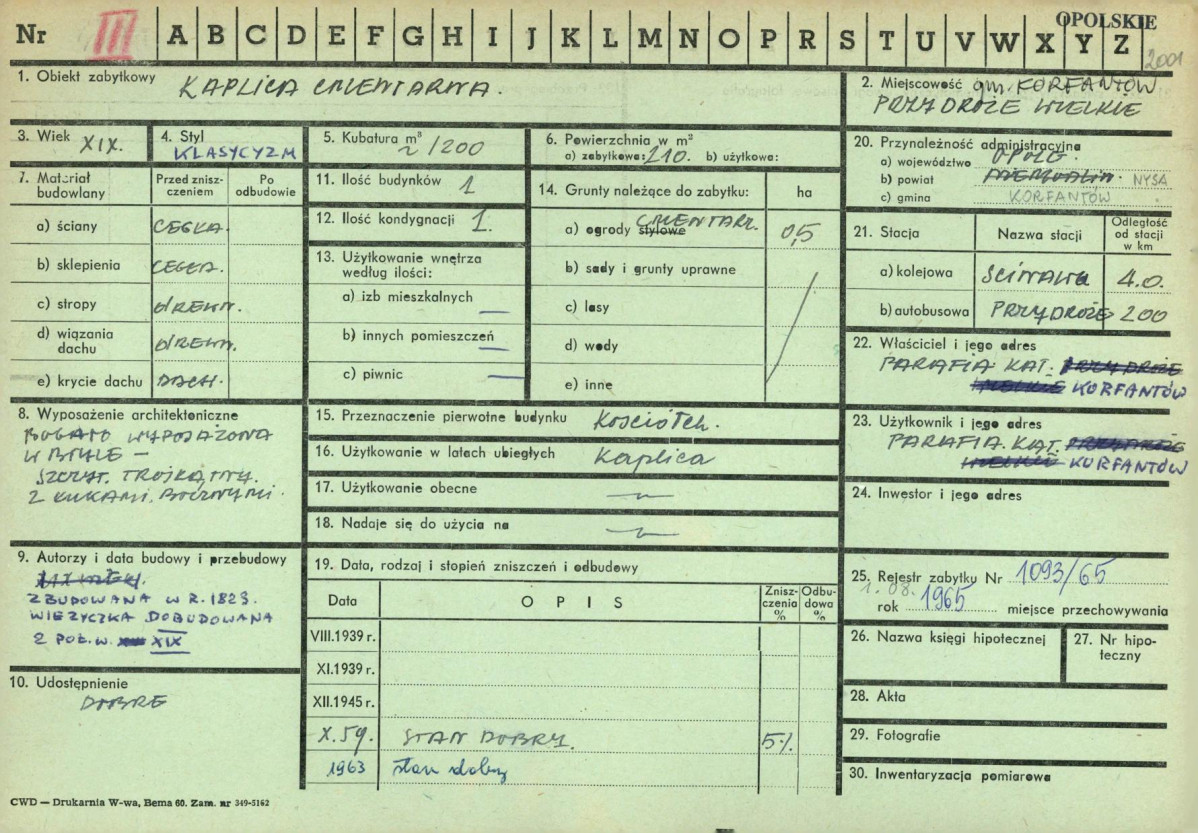 OPOLSKIE
Nr III A B C D E F G H I J K L M N O P R S T U V W X Y Z
2001
1. Obiekt zabytkowy KAPLICA CMENTARNA.
2. Miejscowość gm. KORFANTÓW
PRZYDROŻE WIELKIE
3. Wiek XIX.
4. Styl
KLASYCYZM
5. Kubatura m³ ~ 1200
6. Powierzchnia w m²
a) zabytkowa: 210. b) użytkowa:
20. Przynależność administracyjna
a) województwo OPOLE.
b) powiat NYSA
c) gmina KORFANTÓW
7. Materiał
budowlany
Przed znisz-
czeniem
Po
odbudowie
a) ściany CEGŁA.
b) sklepienia CEGŁA.
c) stropy DREWN.
d) wiązania
dachu DREWN.
e) krycie dachu DACH.
11. Ilość budynków 1
12. Ilość kondygnacji 1.
13. Użytkowanie wnętrza
według ilości:
a) izb mieszkalnych —
b) innych pomieszczeń —
c) piwnic —
14. Grunty należące do zabytku: ha
a) ogrody stylowe CMENTARZ. 0,5
b) sady i grunty uprawne
c) lasy
d) wody
e) inne
21. Stacja
Nazwa stacji
Odległość
od stacji
w km
a) kolejowa ŚCINAWA 4.0.
b) autobusowa PRZYDROŻE 200
22. Właściciel i jego adres
PARAFIA KAT. PRZYDROŻE
WIELKIE KORFANTÓW
23. Użytkownik i jego adres
PARAFIA KAT. PRZYDROŻE
WIELKIE KORFANTÓW
24. Inwestor i jego adres
8. Wyposażenie architektoniczne
BOGATO WYPOSAŻONA
W BRYLE —
SZCZYT. TRÓJKĄTNY.
Z ŁUKAMI. BOCZNYMI.
15. Przeznaczenie pierwotne budynku Kościółek.
16. Użytkowanie w latach ubiegłych Kaplica
17. Użytkowanie obecne —
18. Nadaje się do użycia na —
9. Autorzy i data budowy i przebudowy
XIX WIEK.
ZBUDOWANA W R. 1823.
WIEŻYCZKA DOBUDOWANA
2 POŁ. W. XIX
10. Udostępnienie
DOBRE
19. Data, rodzaj i stopień zniszczeń i odbudowy
Data
OPIS
Znisz-
czenia
%
Odbu-
dowa
%
VIII.1939 r.
XI.1939 r.
XII.1945 r.
X.59. STAN DOBRY. 5%
1963 stan dobry
25. Rejestr zabytku Nr 1093/65
1. 08.
rok 1965 miejsce przechowywania
26. Nazwa księgi hipotecznej
27. Nr hipo-
teczny
28. Akta
29. Fotografie
30. Inwentaryzacja pomiarowa
CWD — Drukarnia W-wa, Bema 60. Zam. nr 349-5162